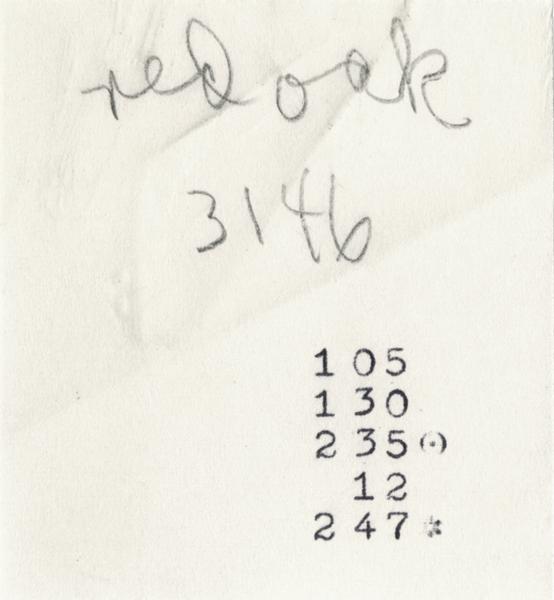 red oak
3146
1 05
1 30
2 35 ⊙
12
2 47 *